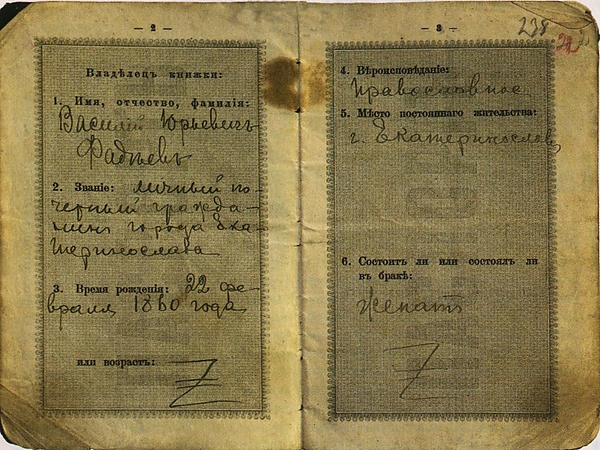 — 2 —
Владѣлецъ книжки:
1. Имя, отчество, фамилія:
Василій Юрьевичъ
Фадѣевъ
2. Званіе: личный по-
четный гражда-
нинъ города Ека-
теринослава
3. Время рожденія: 22 фе-
враля 1860 года
или возрастъ:
Z
— 3 —
238
4. Вѣроисповѣданіе:
православное
5. Мѣсто постояннаго жительства:
г. Екатеринославъ
6. Состоитъ ли или состоялъ ли
въ бракѣ:
женатъ
Z